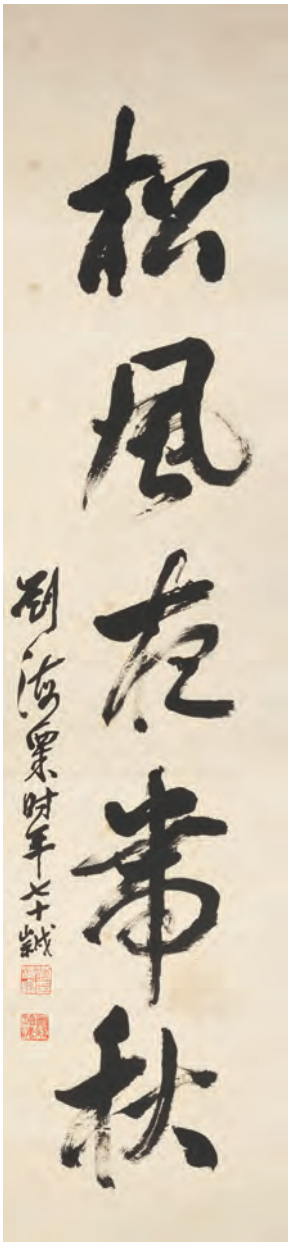 松風夜帶秋
劉海粟时年七十歲